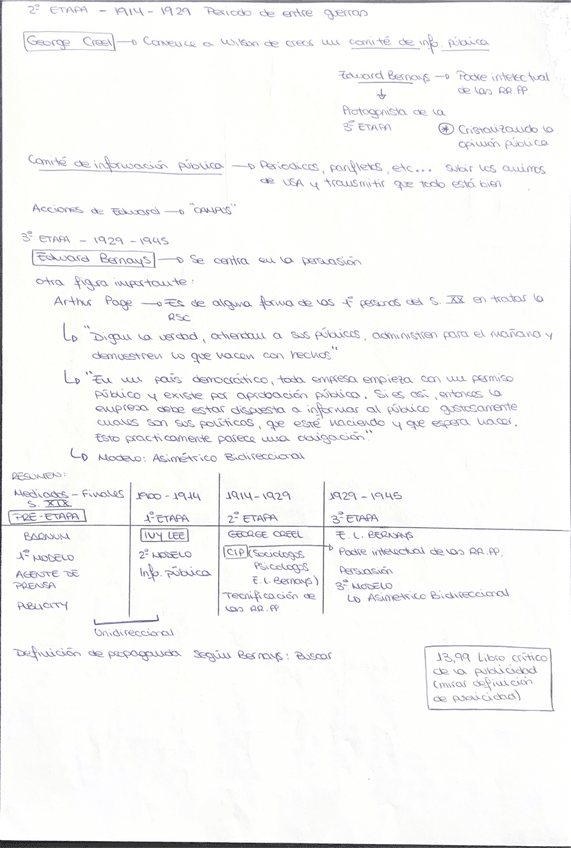 2ª ETAPA - 1914 - 1929 Periodo de entre guerras
George Creel → Convence a Wilson de crear un comité de info. pública
Edward Bernays → Padre intelectual
de las RR.PP
↓
Protagonista de la
3ª ETAPA
* Cristalizando la
opinión pública
Comité de información pública → Periodicos, panfletos, etc... subir los animos
de USA y transmitir que todo está bien
Acciones de Edward → "CAMPUS"
3ª ETAPA - 1929 - 1945
Edward Bernays → Se centra en la persuasión
otra figura importante:
Arthur Page → Es de alguna forma de las 1ª personas del S. XX en tratar la
RSC
↳ "Digan la verdad, atiendan a sus públicos, administren para el mañana y
demuestren lo que hacen con hechos"
↳ "En un país democrático, toda empresa empieza con un permiso
público y existe por aprobación pública. Si es así, entonces la
empresa debe estar dispuesta a informar al público gustosamente
cuales son sus políticas, que esté haciendo y que espera hacer.
Esto practicamente parece una obligación"
↳ Modelo: Asimétrico Bidireccional
RESUMEN:
Mediados - Finales 1900 - 1914 1914 - 1929 1929 - 1945
S. XIX
PRE-ETAPA 1ª ETAPA 2ª ETAPA 3ª ETAPA
BARNUM IVY LEE GEORGE CREEL E. L. BERNAYS
1º MODELO 2º MODELO CIP (Sociologos → Padre intelectual de las RR.PP.
AGENTE DE Info. Pública Psicologos Persuasión
PRENSA E. L. Bernays) 3º MODELO
PUBLICITY Tecnificación de ↳ Asimetrico Bidireccional
las RR.PP
Unidireccional
Definición de propaganda según Bernays: Buscar
13,99 Libro crítico
de la publicidad
(mirar definición
de publicidad)